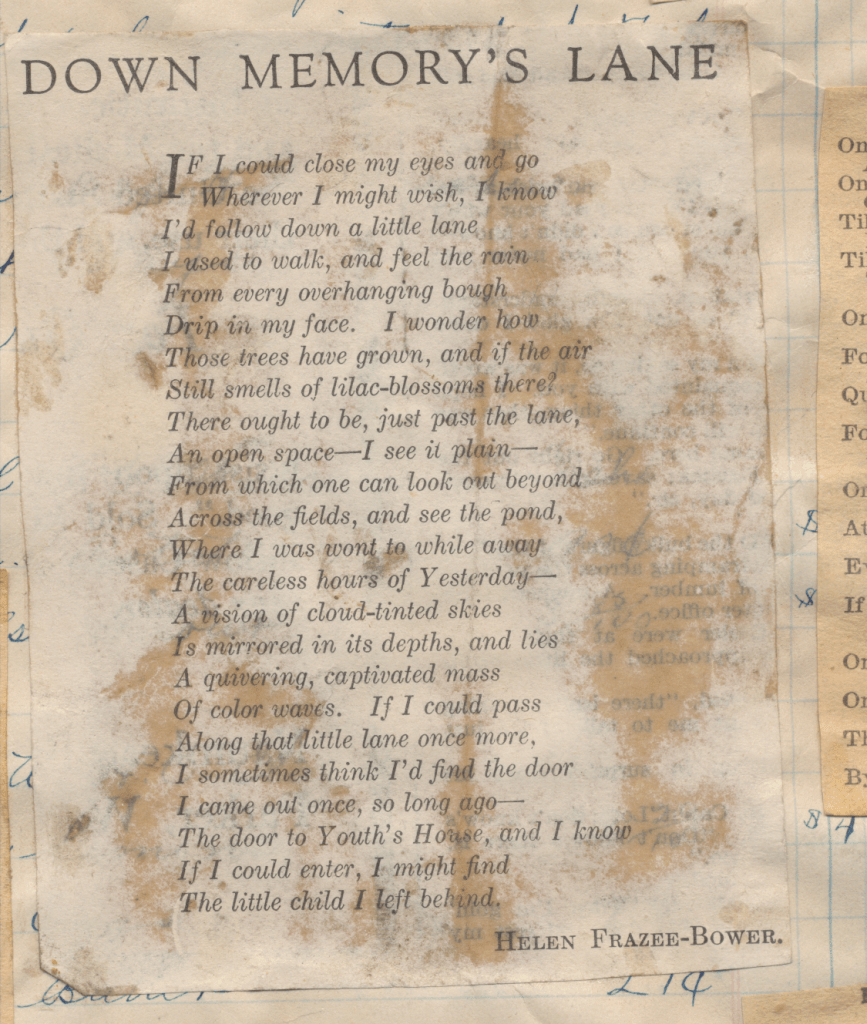 DOWN MEMORY'S LANE
IF I could close my eyes and go
Wherever I might wish, I know
I'd follow down a little lane
I used to walk, and feel the rain
From every overhanging bough
Drip in my face. I wonder how
Those trees have grown, and if the air
Still smells of lilac-blossoms there?
There ought to be, just past the lane,
An open space—I see it plain—
From which one can look out beyond
Across the fields, and see the pond,
Where I was wont to while away
The careless hours of Yesterday—
A vision of cloud-tinted skies
Is mirrored in its depths, and lies
A quivering, captivated mass
Of color waves. If I could pass
Along that little lane once more,
I sometimes think I'd find the door
I came out once, so long ago—
The door to Youth's House, and I know
If I could enter, I might find
The little child I left behind.
HELEN FRAZEE-BOWER.
On
On
Til
Til
On
Fo
Qu
Fo
On
At
Ev
If
On
On
Th
By